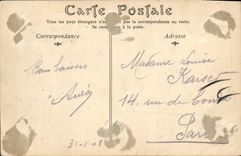 Carte Postale
Tous les pays étrangers n'acceptent pas la correspondance au recto.
Se renseigner à la poste.
Correspondance
Adresse
Bons baisers
Madame Louise
Kaiser
14, rue de
Paris
31-1-08